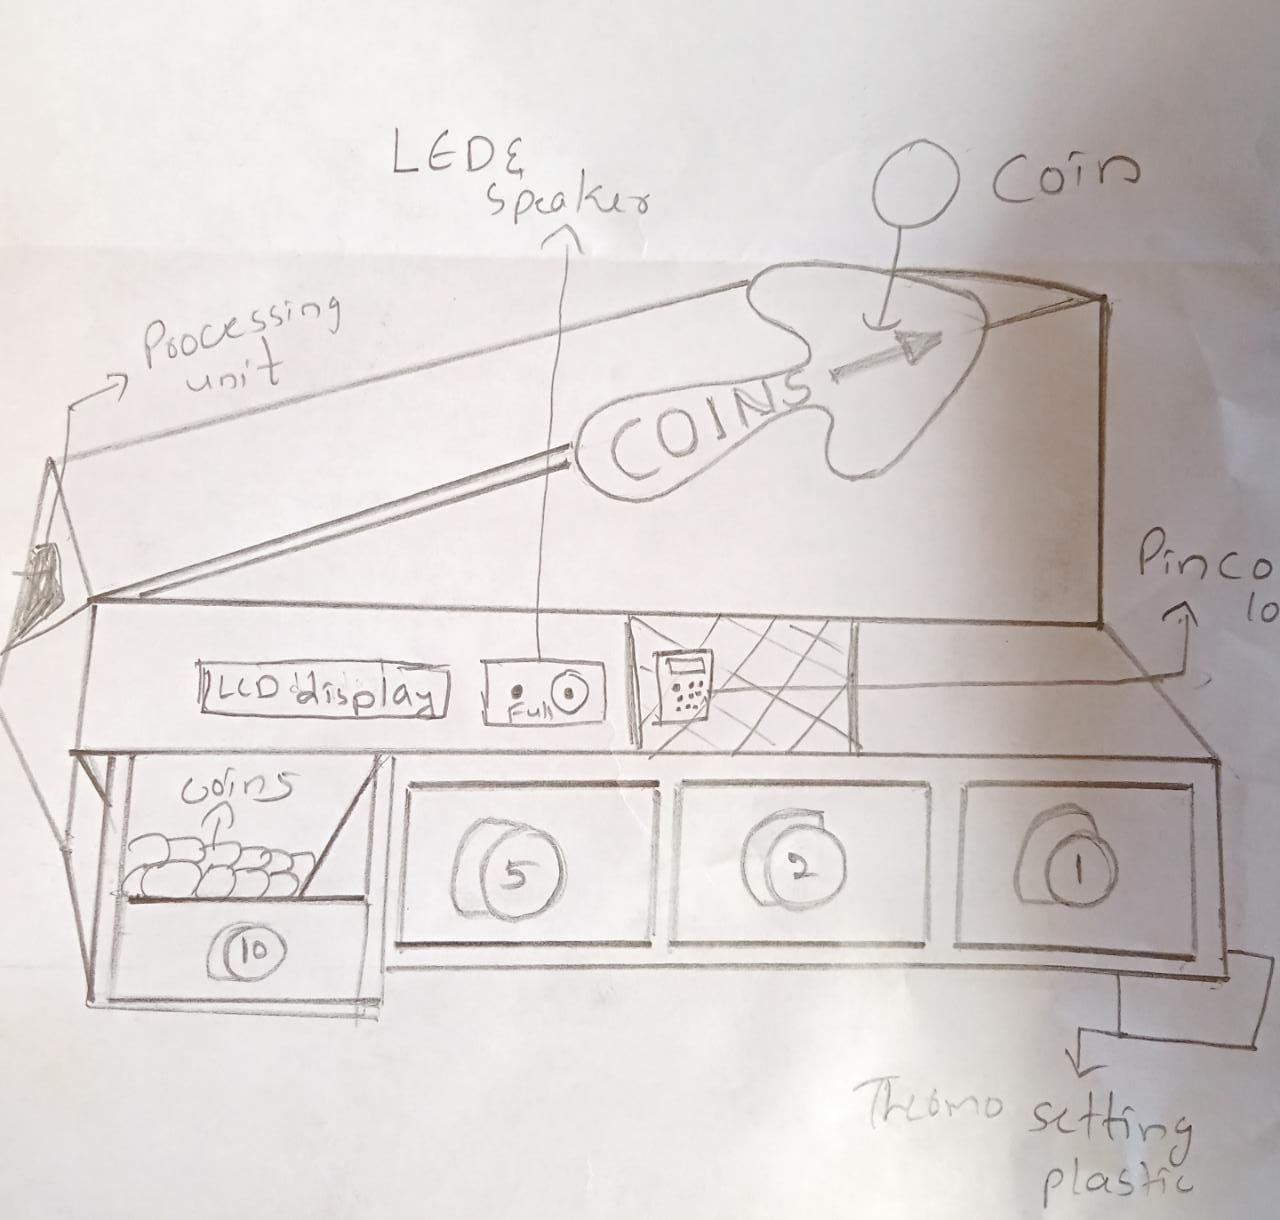 LED &
Speaker
Coin
Processing
unit
COINS
Pinco
lo
LCD display
Full
coins
5
2
1
10
Thermo setting
plastic